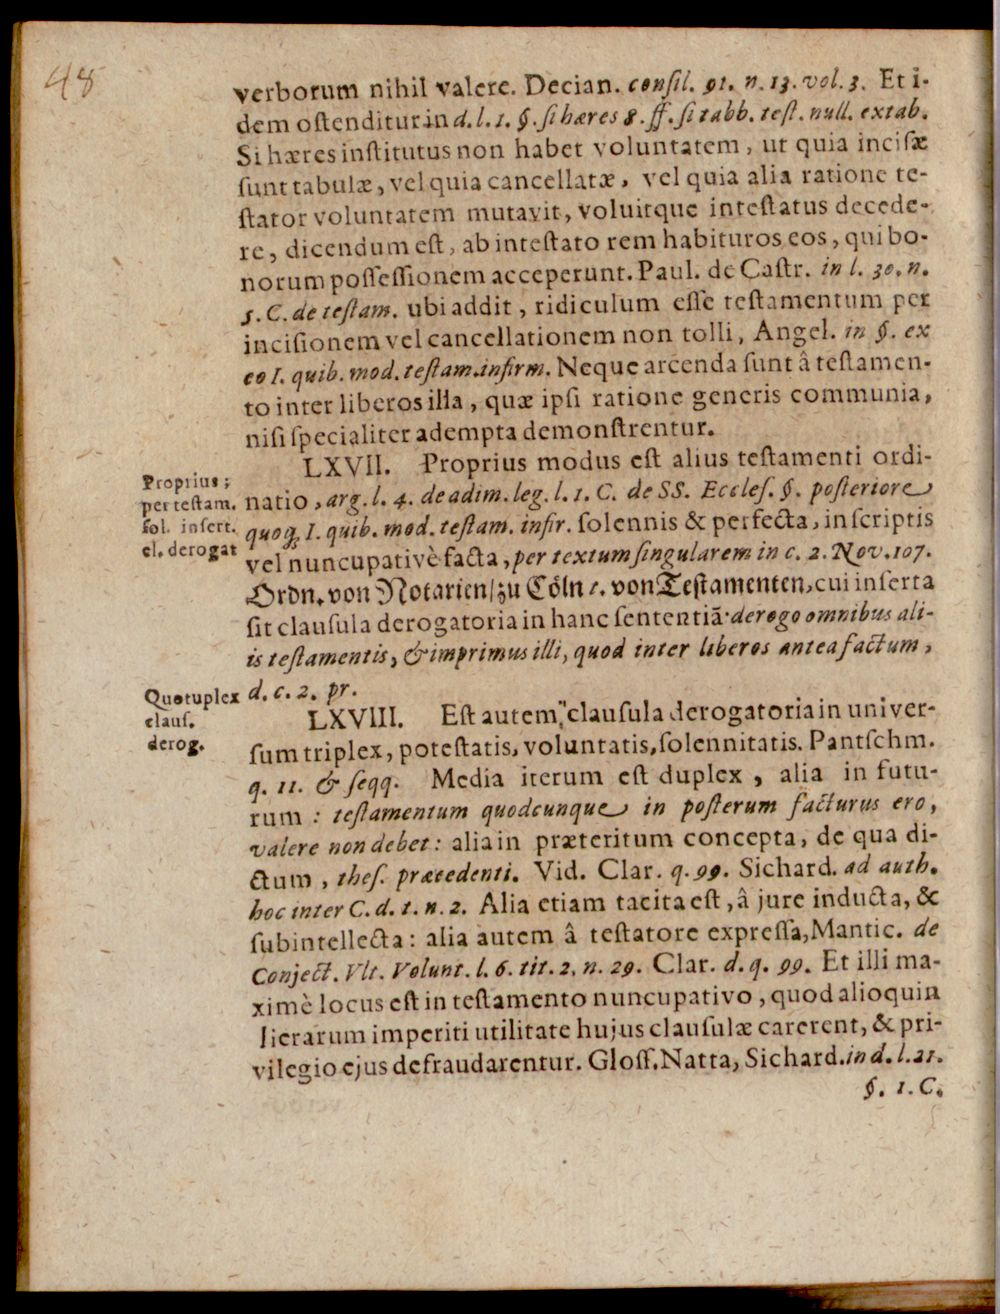 48
verborum nihil valere. Decian. consil. 91. n. 13. vol. 3. Et i-
dem ostenditur in d. l. 1. §. si hæres 8. ff. si tabb. test. null. extab.
Si hæres institutus non habet voluntatem, ut quia incisæ
sunt tabulæ, vel quia cancellatæ, vel quia alia ratione te-
stator voluntatem mutavit, voluitque intestatus decede-
re, dicendum est, ab intestato rem habituros eos, qui bo-
norum possessionem acceperunt. Paul. de Castr. in l. 30. n.
5. C. de testam. ubi addit, ridiculum esse testamentum per
incisionem vel cancellationem non tolli, Angel. in §. ex
eo I. quib. mod. testam. infirm. Neque arcenda sunt â testamen-
to inter liberos illa, quæ ipsi ratione generis communia,
nisi specialiter adempta demonstrentur.
Proprius;
per testam.
sol. insert.
cl. derogat
LXVII. Proprius modus est alius testamenti ordi-
natio, arg. l. 4. de adim. leg. l. 1. C. de SS. Eccles. §. posteriore
quoq; I. quib. mod. testam. infir. solennis & perfecta, in scriptis
vel nuncupativè facta, per textum singularem in c. 2. Nov. 107.
Ordn. von Notarien/ zu Cöln r. von Testamenten, cui inserta
sit clausula derogatoria in hanc sententiã: derogo omnibus ali-
is testamentis, & imprimus illi, quod inter liberos antea factum,
d. c. 2. pr.
Quotuplex
claus.
derog.
LXVIII. Est autem clausula derogatoria in univer-
sum triplex, potestatis, voluntatis, solennitatis. Pantschm.
q. 11. & seqq. Media iterum est duplex, alia in futu-
rum: testamentum quodcunque in posterum facturus ero,
valere non debet: alia in præteritum concepta, de qua di-
ctum, thes. præcedenti. Vid. Clar. q. 99. Sichard. ad auth.
hoc inter C. d. t. n. 2. Alia etiam tacita est, â jure inducta, &
subintellecta: alia autem â testatore expressa, Mantic. de
Conject. Vlt. Volunt. l. 6. tit. 2. n. 29. Clar. d. q. 99. Et illi ma-
ximè locus est in testamento nuncupativo, quod alioquin
lierarum imperiti utilitate hujus clausulæ carerent, & pri-
vilegio ejus defraudarentur. Gloss. Natta, Sichard. in d. l. 21.
§. 1. C.